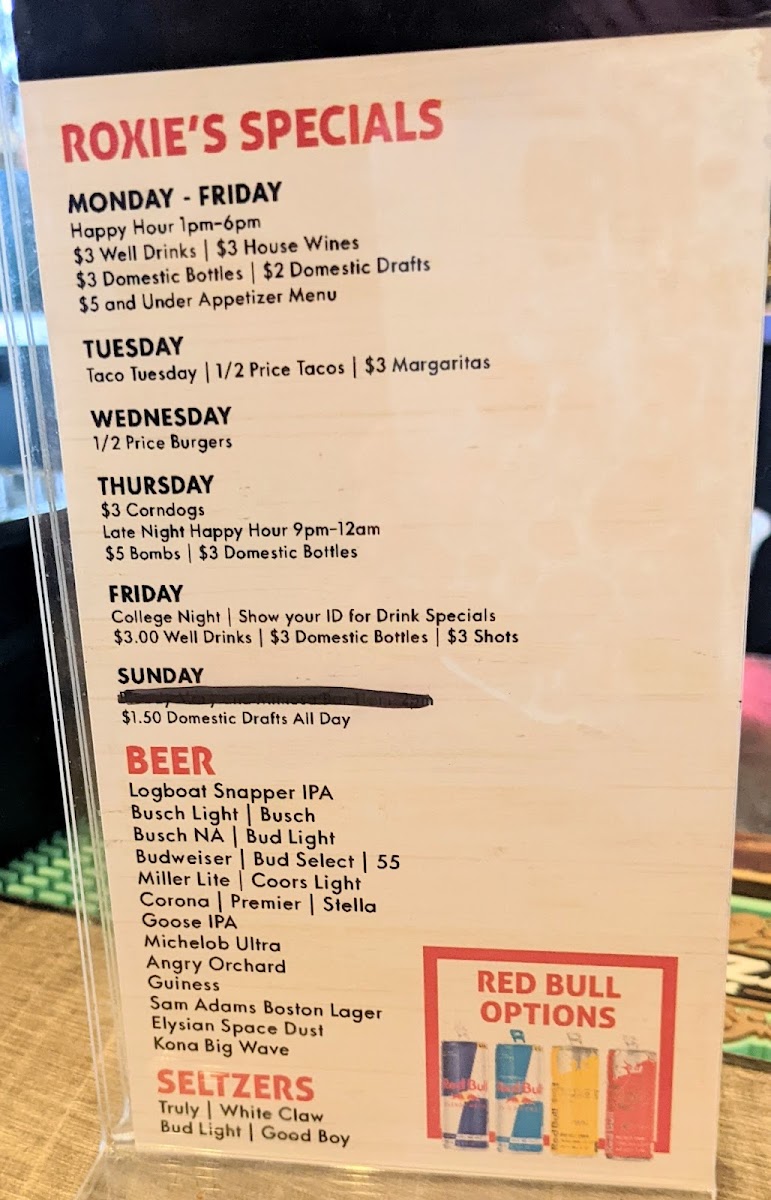 ROXIE'S SPECIALS
MONDAY - FRIDAY
Happy Hour 1pm-6pm
$3 Well Drinks | $3 House Wines
$3 Domestic Bottles | $2 Domestic Drafts
$5 and Under Appetizer Menu
TUESDAY
Taco Tuesday | 1/2 Price Tacos | $3 Margaritas
WEDNESDAY
1/2 Price Burgers
THURSDAY
$3 Corndogs
Late Night Happy Hour 9pm-12am
$5 Bombs | $3 Domestic Bottles
FRIDAY
College Night | Show your ID for Drink Specials
$3.00 Well Drinks | $3 Domestic Bottles | $3 Shots
SUNDAY
$1.50 Domestic Drafts All Day
BEER
Logboat Snapper IPA
Busch Light | Busch
Busch NA | Bud Light
Budweiser | Bud Select | 55
Miller Lite | Coors Light
Corona | Premier | Stella
Goose IPA
Michelob Ultra
Angry Orchard
Guiness
Sam Adams Boston Lager
Elysian Space Dust
Kona Big Wave
SELTZERS
Truly | White Claw
Bud Light | Good Boy
RED BULL
OPTIONS
Red Bull
Red Bull